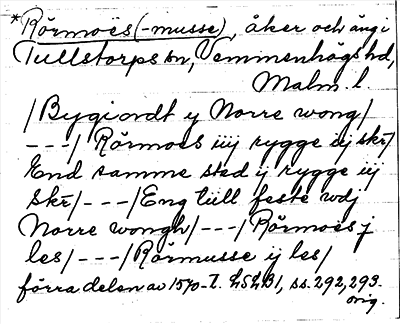 *Rörmoës (-musse), åker och äng i
Tullstorps sn, Vemmenhögs hd,
Malm. l.
/Bygiordt y Norre wong/
---/ Rörmoes iiij rygge iij skr/
End samme sted y rygge iij
skr/---/Eng till feste wdj
Norre wongh/---/Rörmoës j
les/---/Rörmusse ij les/
förra delen av 1570-t. LSLB1, ss. 292, 293.
orig.